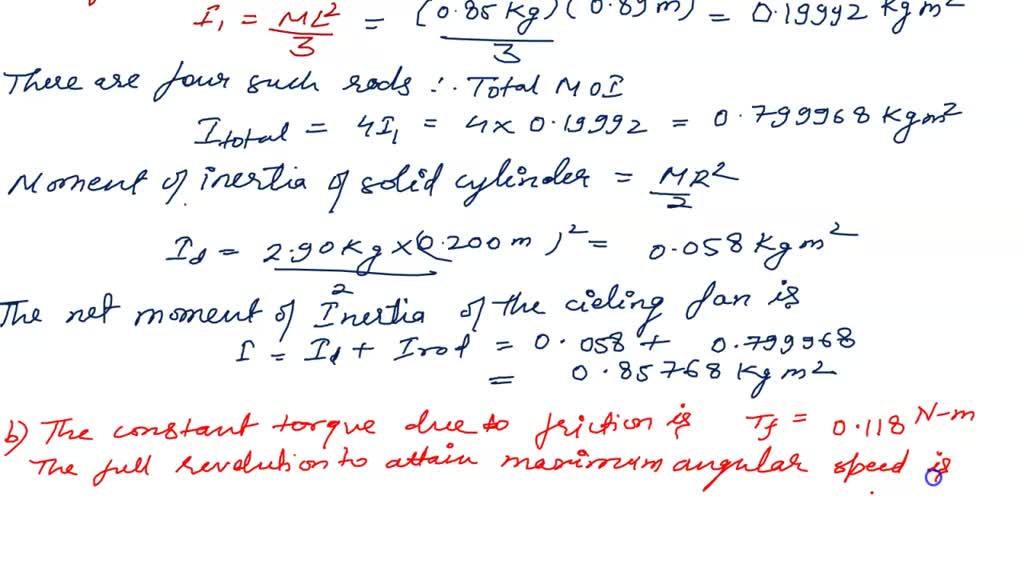 I₁ = ML²/3 = (0.85 Kg)(0.89 m)/3 = 0.19992 Kg m²
There are four such rods ∴ Total MOI
I total = 4I₁ = 4 × 0.19992 = 0.799968 Kgm²
Moment of inertia of solid cylinder = MR²/2
I_d = 2.90 Kg × (0.200 m)²/2 = 0.058 Kg m²
The net moment of Inertia of the cieling fan is
I = I_d + I rod = 0.058 + 0.799968
= 0.85768 Kg m²
b) The constant torque due to friction is T_f = 0.118 N-m
The full revolution to attain maximum angular speed is